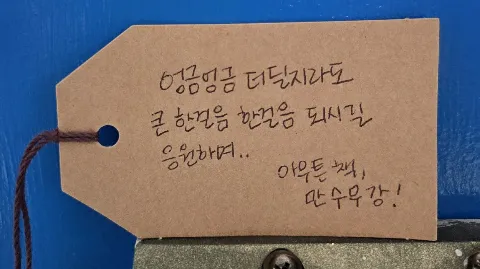 엉금엉금 더딜지라도
큰 한걸음 한걸음 되시길
응원하며..
아무튼 책,
만수무강!